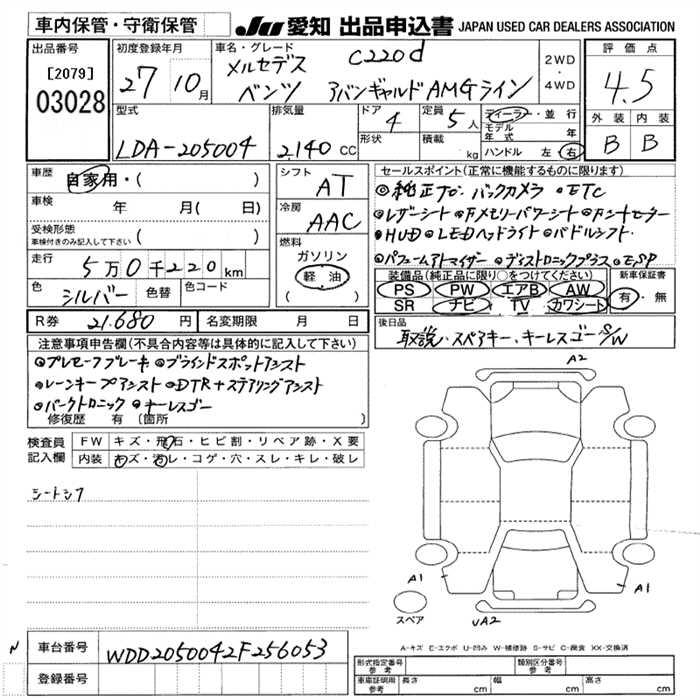 車内保管・守衛保管
JU 愛知 出品申込書 JAPAN USED CAR DEALERS ASSOCIATION
出品番号
[2079]
03028
初度登録年月
27 10月
車名・グレード
メルセデス C220d
ベンツ アバンギャルドAMGライン
2WD
・
4WD
評価点
4.5
外装 内装
B B
型式
LDA-205004
排気量
2.140 CC
ドア 4
形状
定員 5人
積載 kg
ディーラー・並行
モデル年式 年
ハンドル 左 右
車歴 自家用・( )
車検 年 月( 日)
受検形態
車検付きのみ記入して下さい ( )
走行 5万0千220km
色 シルバー 色替 色コード
シフト AT
冷房 AAC
燃料
ガソリン
軽油
( )
セールスポイント(正常に機能するものに限ります)
◎純正ナビ バックカメラ ◎ETC
◎レザーシート ◎Fメモリーパワーシート ◎Fシートヒーター
◎HUD ◎LEDヘッドライト ◎パドルシフト
◎パフュームアトマイザー ◎ディストロニックプラス ◎ESP
装備品(純正品に限り○をつけてください)
PS PW エアB AW
SR ナビ TV カワシート
新車保証書
有・無
R券 21.680円 名変期限 月 日
後日品
取説・スペアキー、キーレスゴーS/W
注意事項申告欄(不具合内容等は具体的に記入して下さい)
◎プレセーフブレーキ ◎ブラインドスポットアシスト
◎レーンキープアシスト ◎DTR+ステアリングアシスト
◎パークトロニック ◎キーレスゴー
修復歴 有 (箇所 )
検査員
記入欄
FW キズ・飛石・ヒビ割・リペア跡・X要
内装 キズ・汚レ・コゲ・穴・スレ・キレ・破レ
シートシワ
A2
A1
A1
UA2
スペア
A-キズ E-エクボ U-凹み W-補修跡 S-サビ C-腐食 XX-交換済
N
車台番号 WDD2050042F256053
登録番号
形式指定番号
参考
類別区分番号
参考
車庫証明用
参考
長さ cm 幅 cm 高さ cm